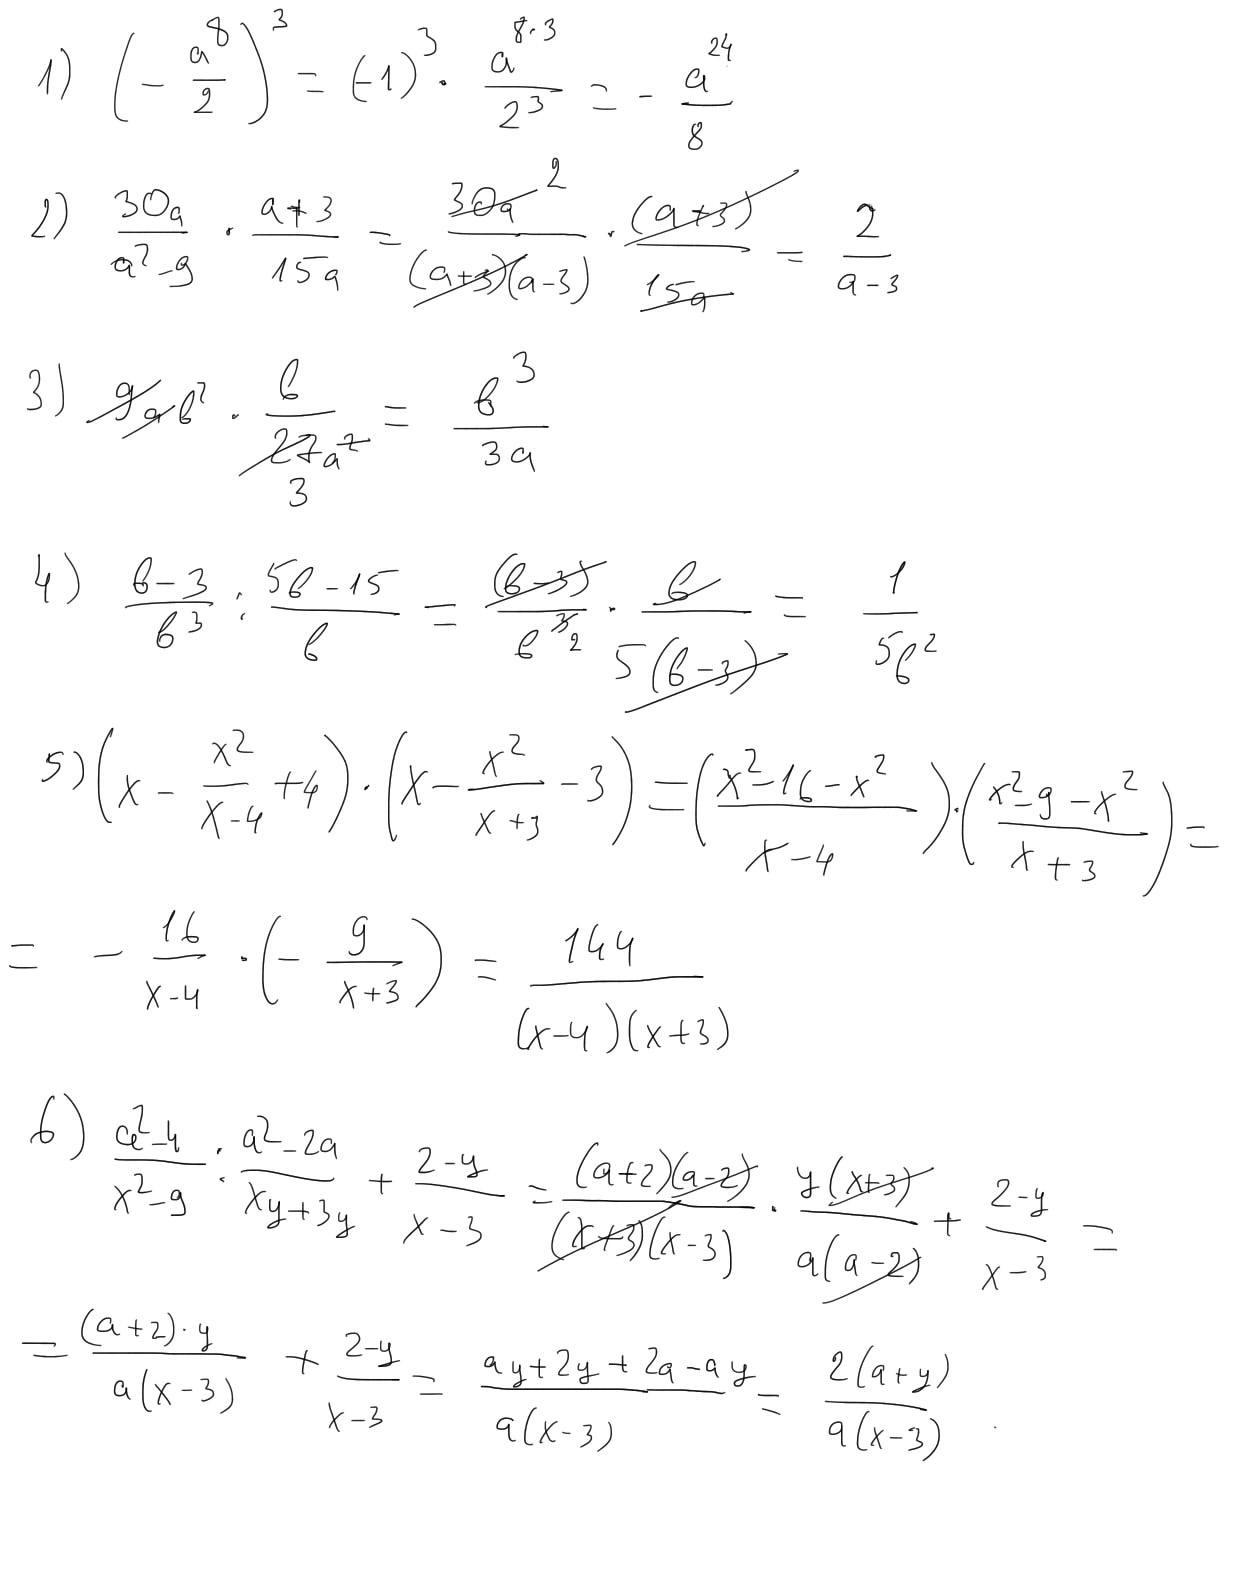 1) (- a^8/2)^3 = (-1)^3 · a^(8·3)/2^3 = - a^24/8
2) 30a/(a^2-9) · (a+3)/(15a) = 30a 2/((a+3)(a-3)) · (a+3)/(15a) = 2/(a-3)
3) 9ab^2 · b/(27a^2) 3 = b^3/(3a)
4) (b-3)/b^3 : (5b-15)/b = (b-3)/b^3 2 · b/(5(b-3)) = 1/(5b^2)
5) (x - x^2/(x-4) + 4) · (x - x^2/(x+3) - 3) = ((x^2-16-x^2)/(x-4)) · ((x^2-9-x^2)/(x+3)) =
= - 16/(x-4) · (- 9/(x+3)) = 144/((x-4)(x+3))
6) (a^2-4)/(x^2-9) : (a^2-2a)/(xy+3y) + (2-y)/(x-3) = ((a+2)(a-2))/((x+3)(x-3)) · (y(x+3))/(a(a-2)) + (2-y)/(x-3) =
= ((a+2)·y)/(a(x-3)) + (2-y)/(x-3) = (ay+2y+2a-ay)/(a(x-3)) = (2(a+y))/(a(x-3))